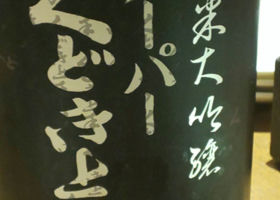 米大吟醸
ーパー
くどき上